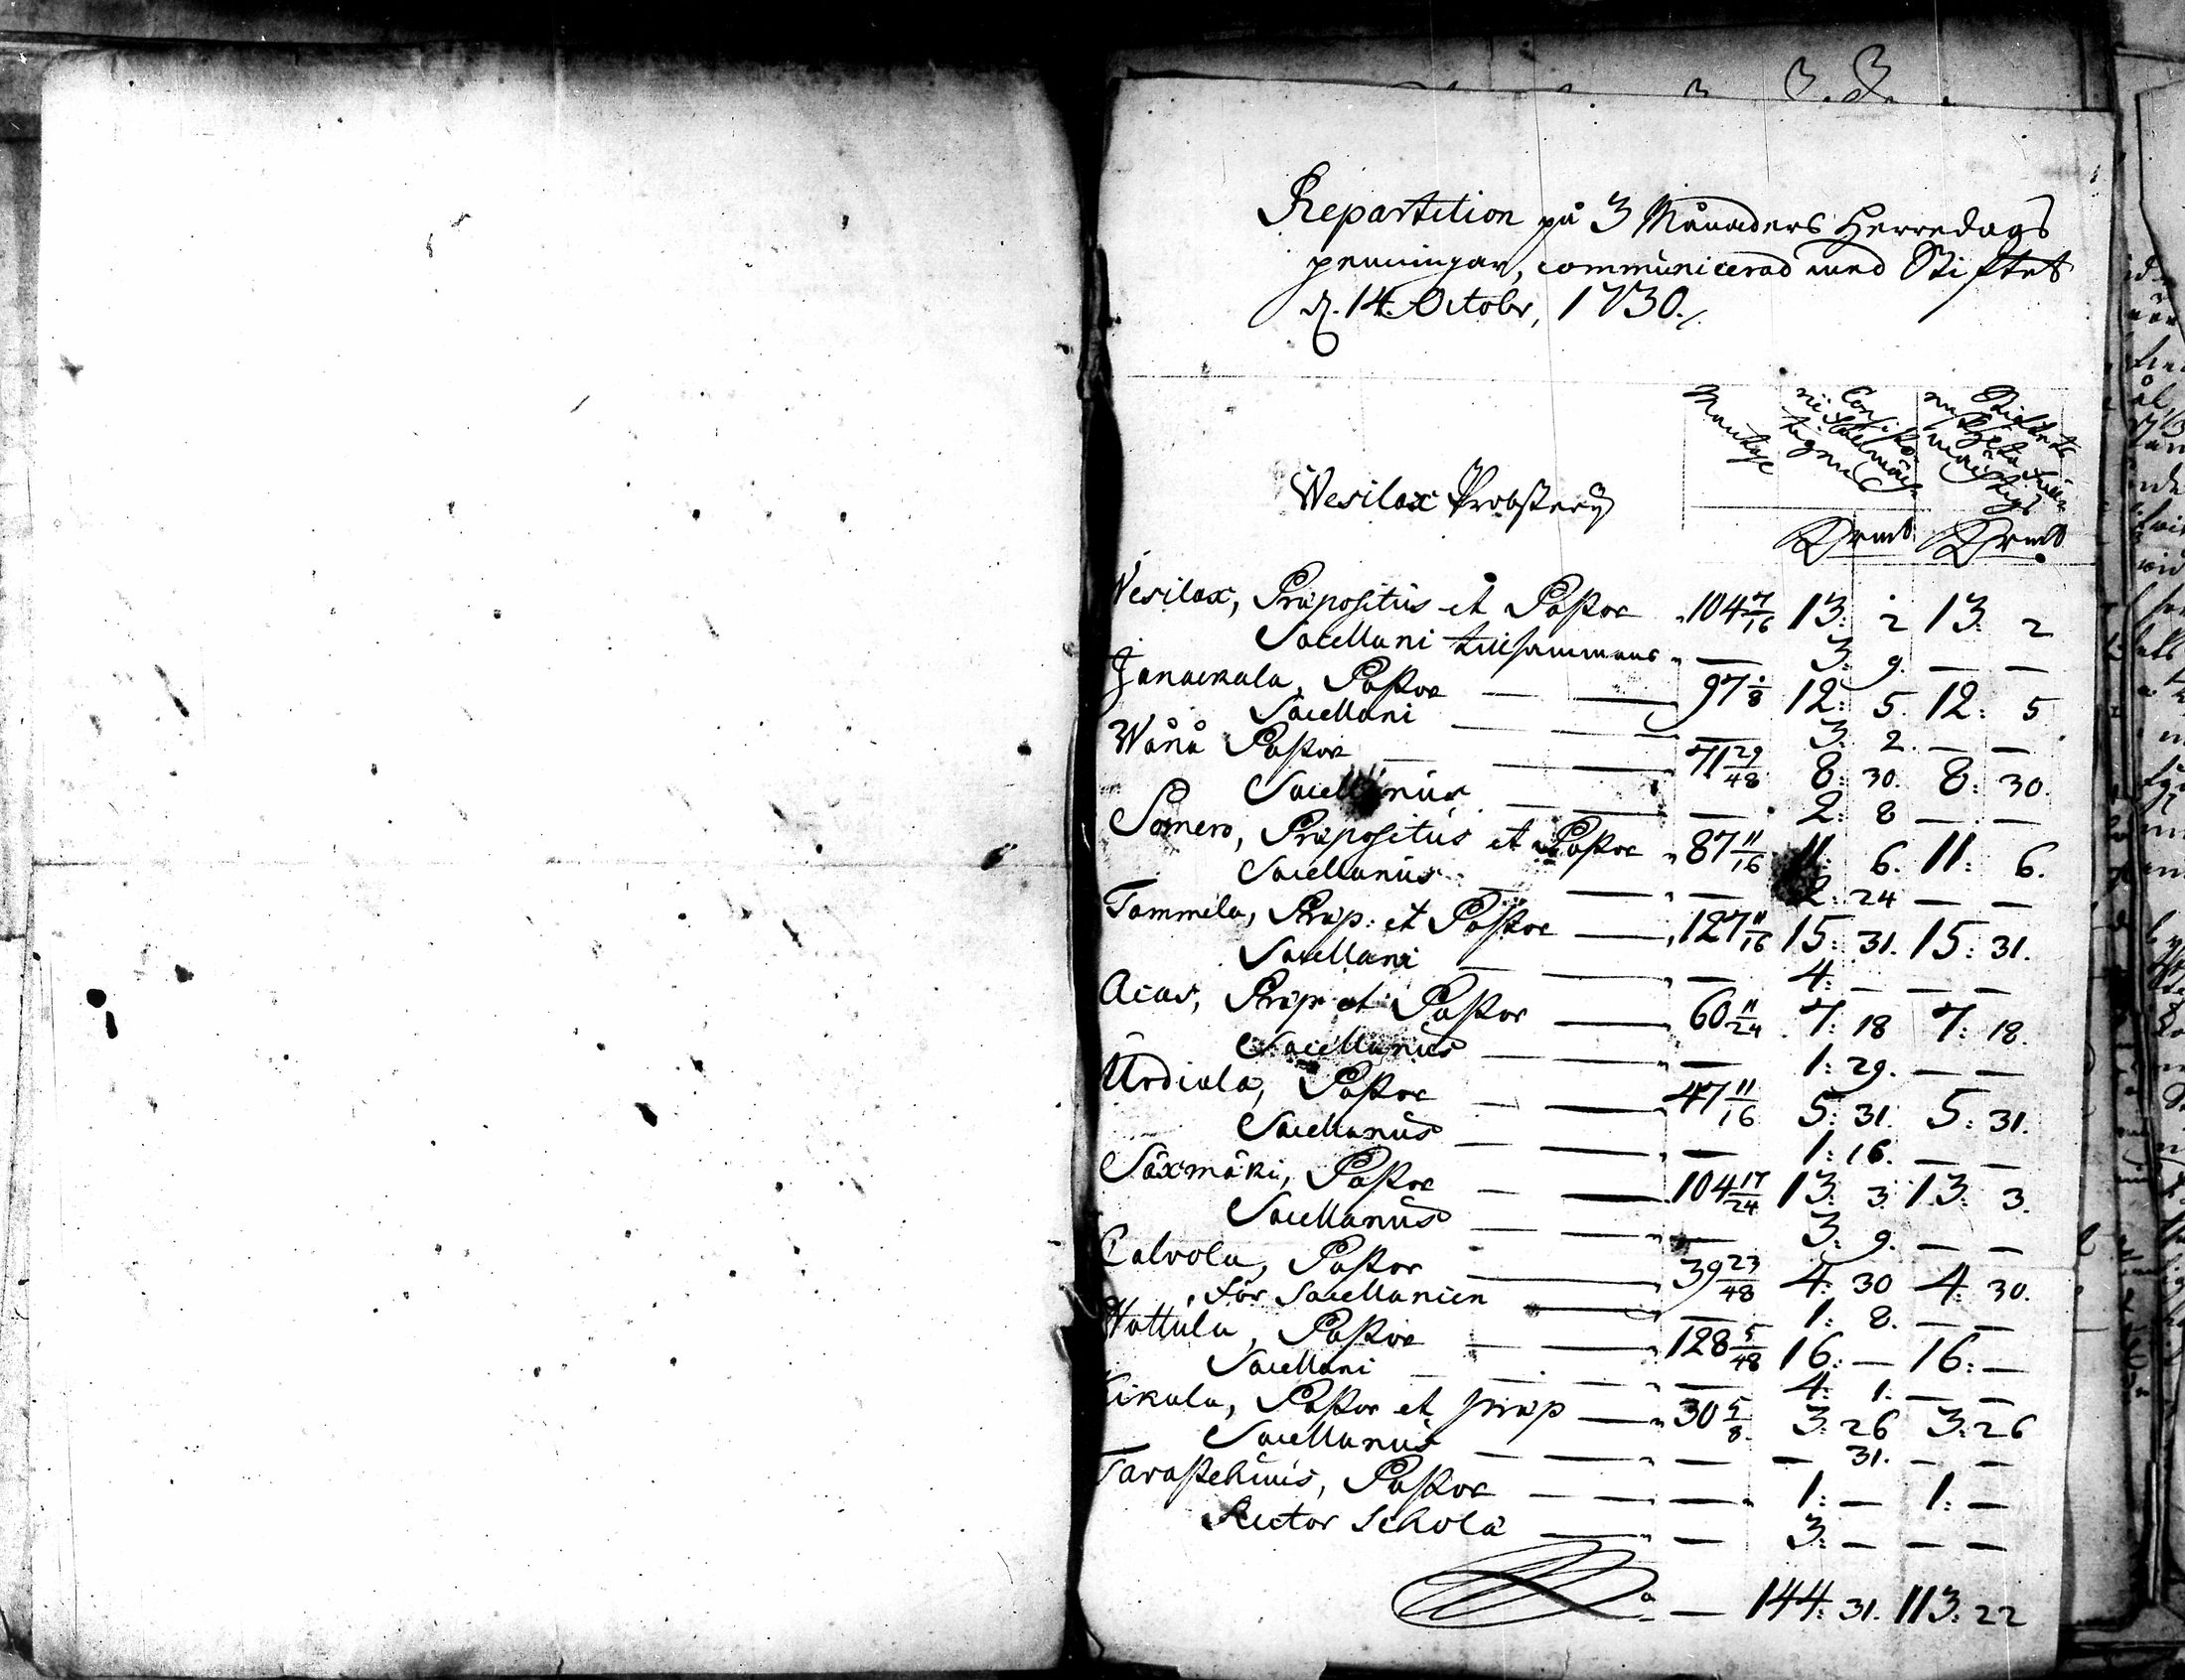 Repartition på 3 Månaders Herredags
penningar, communicerad med Stiftet
d. 14. Octobr, 1730./.
Mantage
Consisto-
rii
Stiftets
Wesilax Probsterij
D:r smt D:r smt
Wesilax, Præpositus et Pastor 104 7/16 13: 2 13: 2
Sacellani tillsammans — 3: 9. — —
Janackala, Pastor — — 97 1/8 12: 5. 12: 5
Sacellani — — — 3: 2. — —
Wånå Pastor — — 71 29/48 8: 30. 8: 30.
Sacellanus — — — 2: 8 — —
Somero, Præpositus et Pastor 87 11/16 11: 6. 11: 6.
Sacellanus — — — 2: 24 — —
Tammela, Præp: et Pastor — 127 11/16 15: 31. 15: 31.
Sacellani — — — 4: — — —
Acas, Præp: et Pastor — 60 11/24 7: 18 7: 18.
Sacellanus — — — 1: 29. — —
Urdiala, Pastor — — 47 11/16 5: 31. 5: 31.
Sacellanus — — — 1: 16. — —
Säxmäki, Pastor — — 104 17/24 13: 3. 13: 3.
Sacellanus — — — 3: 9. — —
Calvola, Pastor — 39 23/48 4: 30 4: 30.
För Sacellanien — — 1: 8. — —
Wattula, Pastor — — 128 5/48 16: — 16: —
Sacellani — — — 4: 1. — —
Kikala, Pastor et præp — 30 5/8 3: 26 3: 26
Sacellanus — — — — 31. — —
Tavastehuus, Pastor — — — 1: — 1: —
Rector Scholæ — — 3: — — —
— 144: 31. 113: 22